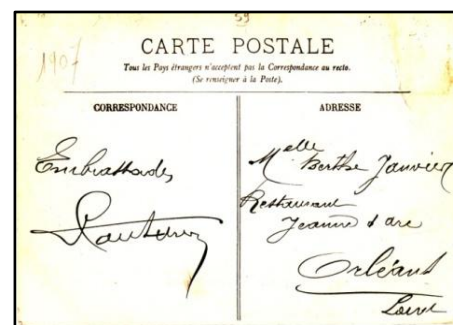 59
1907
CARTE POSTALE
Tous les Pays étrangers n'acceptent pas la Correspondance au recto.
(Se renseigner à la Poste).
CORRESPONDANCE
Embrassades
ADRESSE
Melle
Berthe Janvier
Restaurant
Jeanne d'arc
Orléans
Loiret